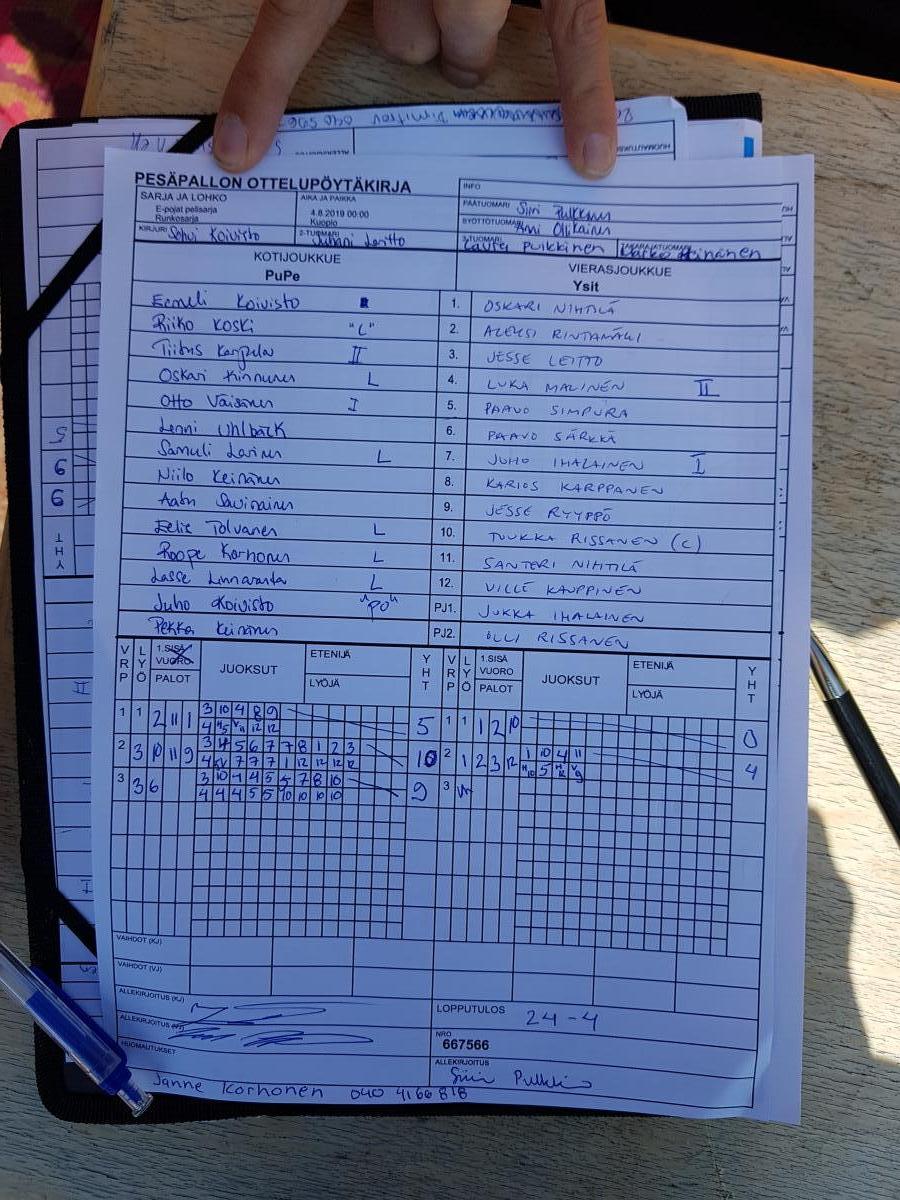 PESÄPALLON OTTELUPÖYTÄKIRJA
INFO
SARJA JA LOHKO
E-pojat pelisarja
Runkosarja
AIKA JA PAIKKA
4.8.2019 00:00
Kuopio
PÄÄTUOMARI Siiri Pulkkinen
SYÖTTÖTUOMARI Ollikainen
KIRJURI Koivisto
2-TUOMARI Juhani Leritto
3-TUOMARI Laura Pulkkinen
Heinänen
KOTIJOUKKUE
PuPe
VIERASJOUKKUE
Ysit
Eemeli Koivisto 1. OSKARI NIHTILÄ
Riiko Koski "L" 2. ALEKSI RINTAMÄKI
Tiitus Karppela II 3. JESSE LEITTO
Oskari Kinnunen L 4. LUKA MALINEN II
Otto Väisänen I 5. PAAVO SIMPURA
Lenni Uhlbäck 6. PAAVO SÄRKKÄ
Samuli Lavinen L 7. JUHO IHALAINEN I
Niilo Keinänen 8. KARIOS KARPPANEN
Aatu Savinainen 9. JESSE RYYPPÖ
Eelis Tolvanen L 10. TUUKKA RISSANEN (C)
Roope Korhonen L 11. SANTERI NIHTILÄ
Lasse Linnaranta L 12. VILLE KAUPPINEN
Juho Koivisto "PO" PJ1. JUKKA IHALAINEN
Pekka Keinänen PJ2. OLLI RISSANEN
VRP LYÖ 1.SISÄ VUORO PALOT JUOKSUT ETENIJÄ LYÖJÄ YHT VRP LYÖ 1.SISÄ VUORO PALOT JUOKSUT ETENIJÄ LYÖJÄ YHT
1 1 2 11 1 3 10 4 8 9 5 1 1 1 2 10 0
2 3 10 11 9 3 5 6 7 7 8 1 2 3 10 2 1 2 3 12 1 10 4 11 4
7 7 7 1 12 12 12 12
3 3 6 3 10 4 4 5 5 7 8 10 9 3
4 4 4 5 5 10 10 10 10
VAIHDOT (KJ)
VAIHDOT (VJ)
ALLEKIRJOITUS (KJ)
LOPPUTULOS 24-4
ALLEKIRJOITUS (VJ)
NRO
667566
HUOMAUTUKSET
ALLEKIRJOITUS
Siiri Pulkkinen
Janne Korhonen 040 4166 818